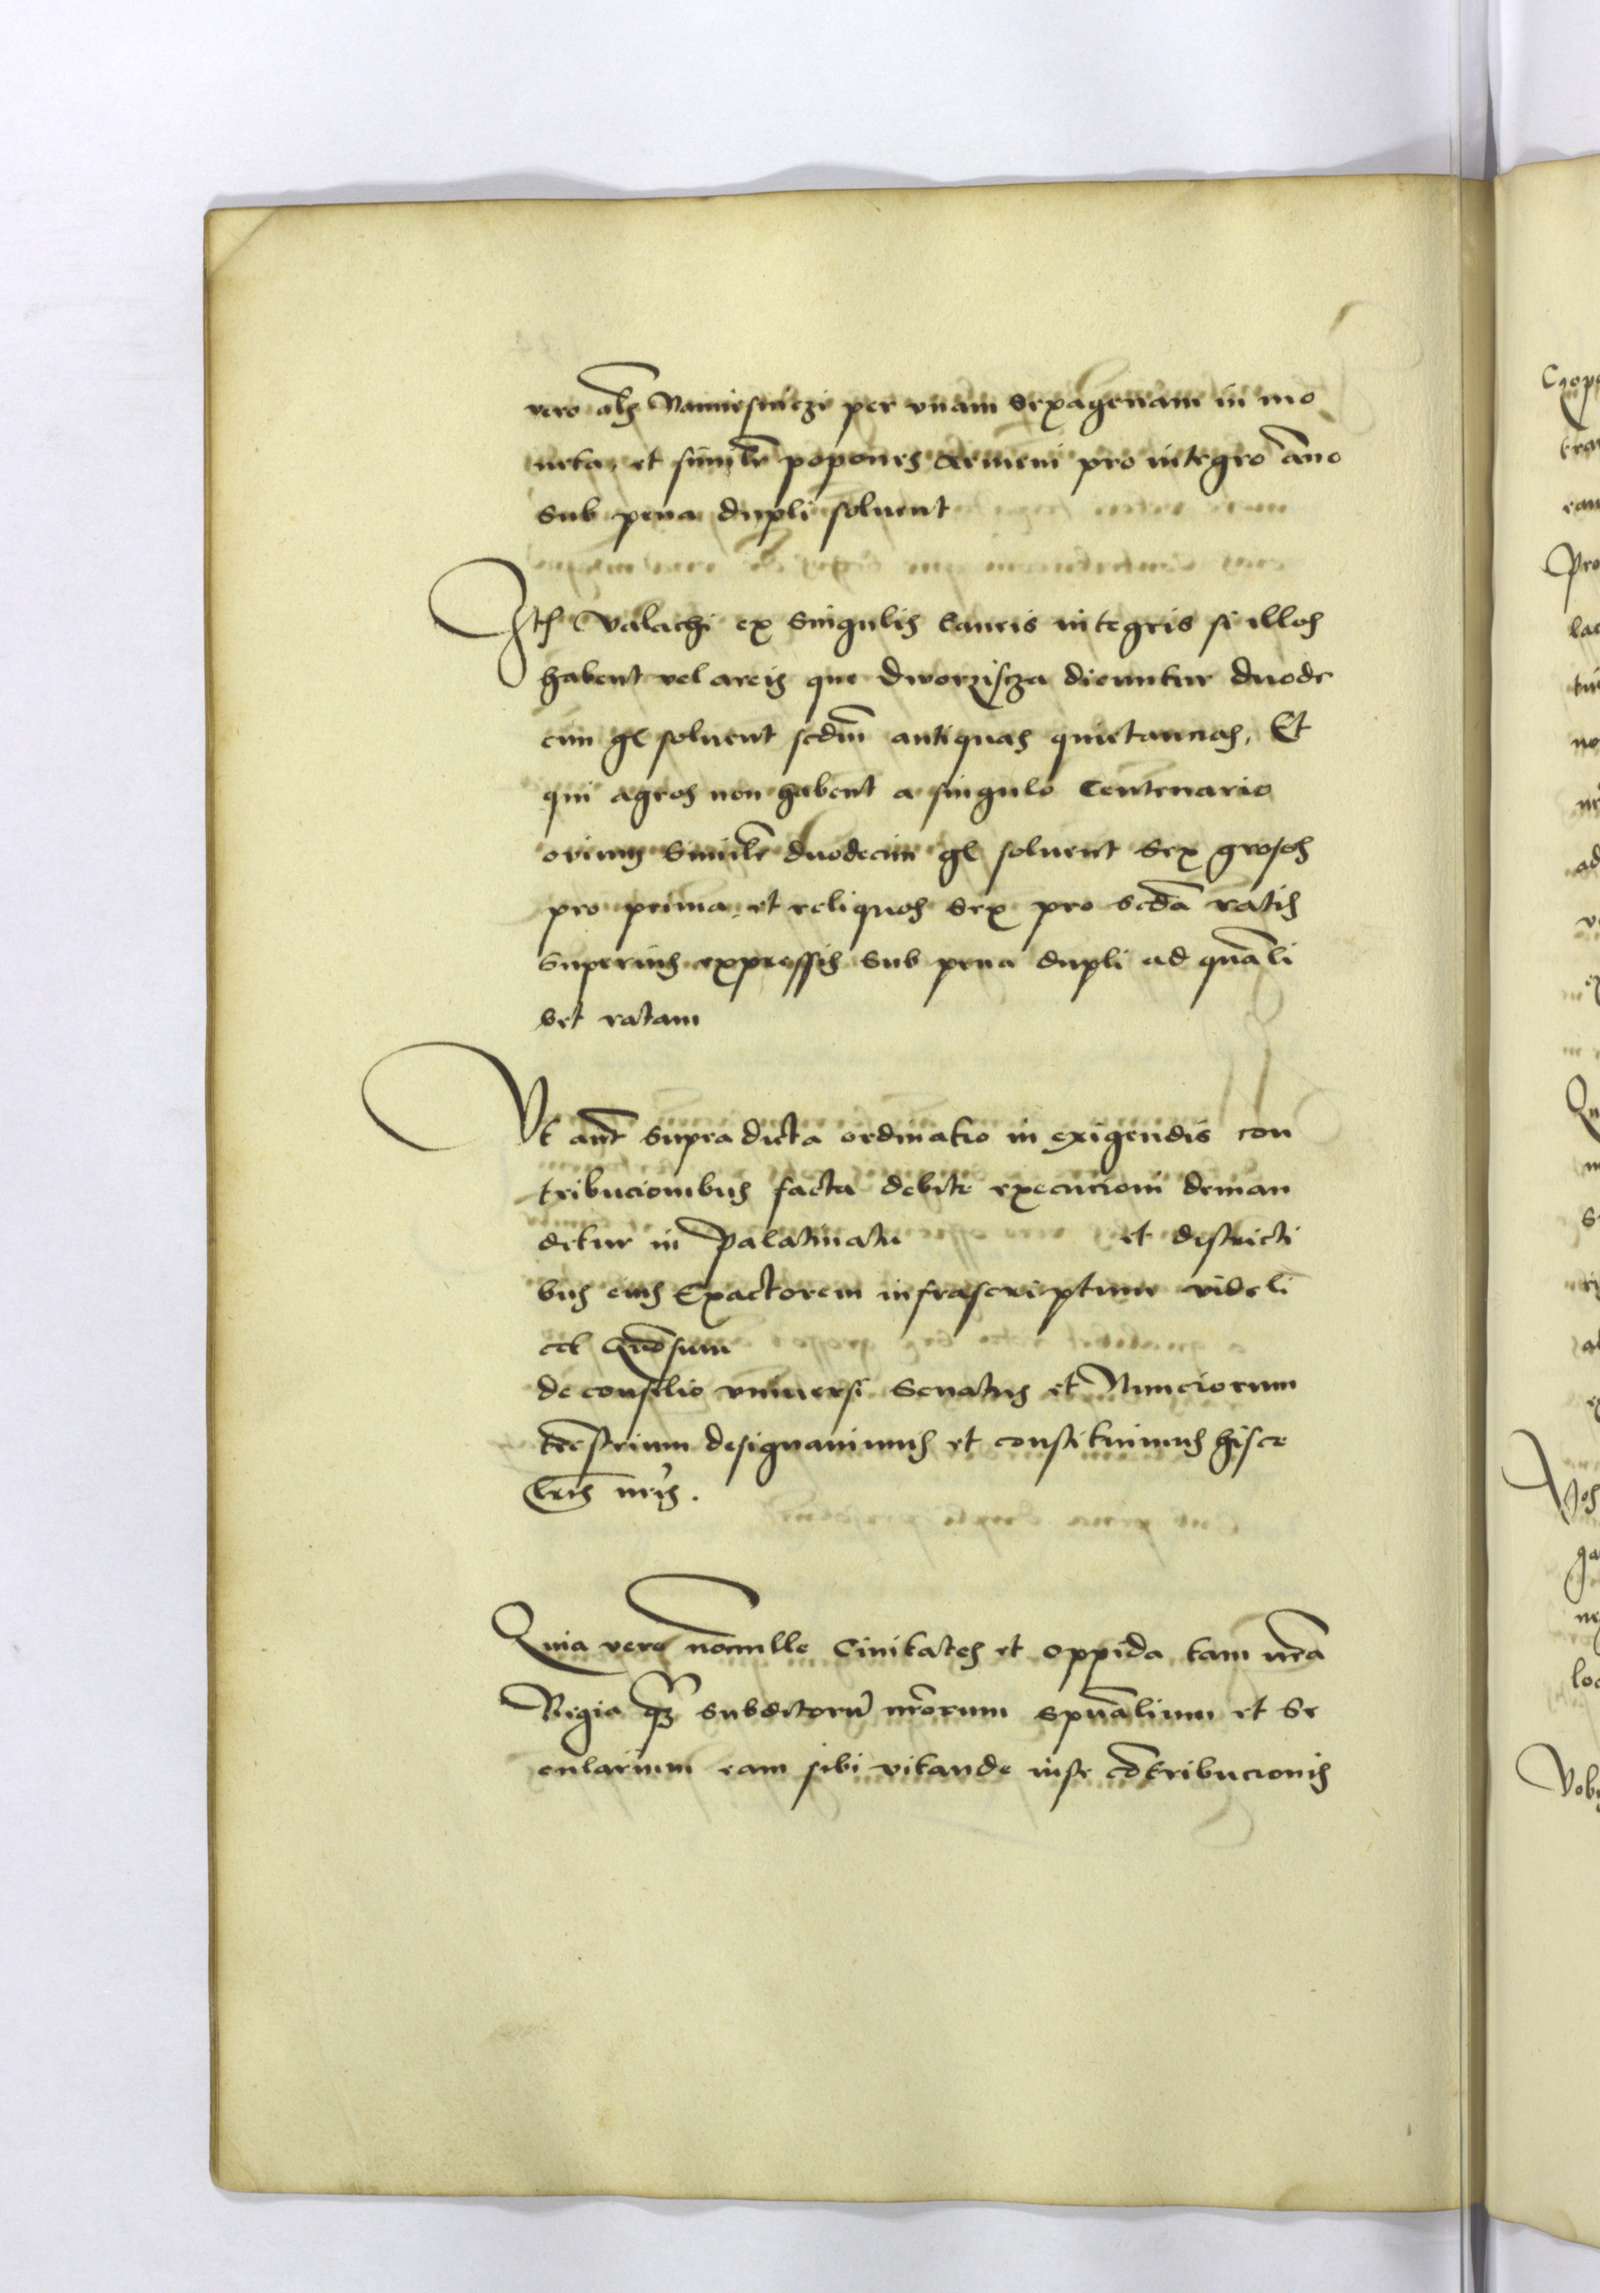 vero als Namiesniczi per vnam sexagenam in mo
neta, et similr popones Armeni pro integro ano
sub pena dupli soluent
Ite Valachi ex singulis laneis integris si illos
habent vel areis que dworzisza dicuntur duode
cim gl soluent scdm antiquas quietancias, Et
qui agros non habent a singulo Centenario
ovium similr duodecim gl soluent sex grosos
pro prima, et reliquos sex pro scda ratis
superius expressis sub pena dupli ad quali
bet ratam
Vt aut supradicta ordinatio in exigendis con
tribucionibus facta debite execucioni deman
detur in Palatinatu et districti
bus eius Exactorem infrascriptum videli
cet
de consilio vniuersi Senatus et Nunciorum
trestrium designauimus et constituimus hisce
lris nris.
Quia vero nonulle Ciuitates et oppida tam nra
Regia qz subditoru nrorum spualium et Se
cularium eam sibi vitande iuste cotribucionis